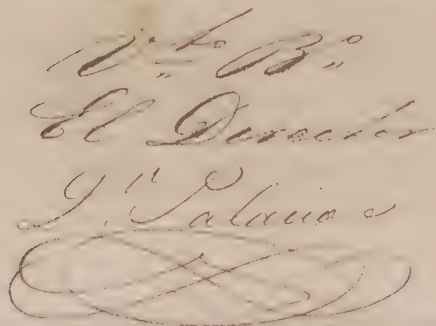 V.to B.o
El Director
J. Palacios